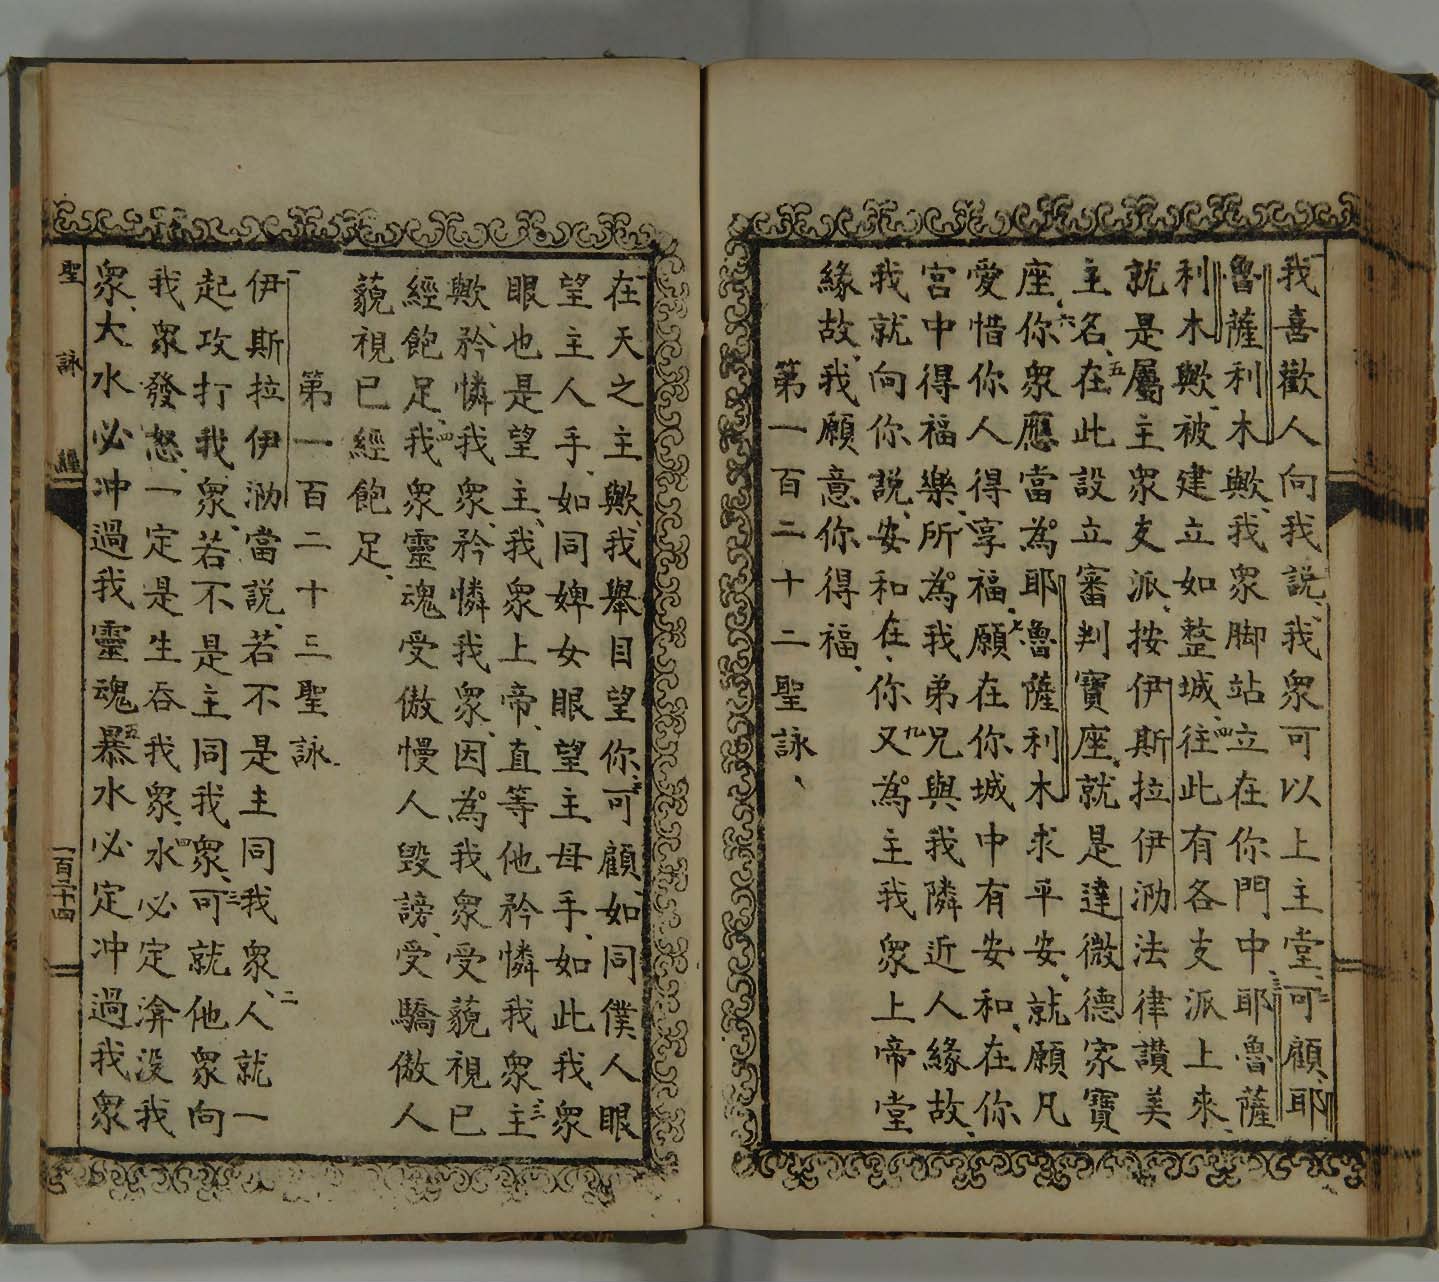 一我喜歡人向我說、我衆可以上主堂、二可顧、耶
魯薩利木歟、我衆脚站立在你門中、三耶魯薩
利木歟、被建立如整城、四往此有各支派上來、
就是屬主衆支派、按伊斯拉伊泐法律讃美
主名、五在此設立審判寶座、就是達微德家寶
座、六你衆應當為耶魯薩利木求平安、就願凡
愛惜你人得享福、七願在你城中有安和、在你
宮中得福樂、八所為我弟兄與我隣近人緣故、
我就向你說、安和在你、九又為主我衆上帝堂
緣故、我願意你得福、
第一百二十二聖詠、
一在天之主歟、我舉目望你、二可顧、如同僕人眼
望主人手、如同婢女眼望主母手、如此我衆
眼也是望主、我衆上帝、直等他矜憐我衆、三主
歟、矜憐我衆、矜憐我衆、因為我衆受藐視已
經飽足、四我衆靈魂受傲慢人毀謗、受驕傲人
藐視已經飽足、
第一百二十三聖詠、
一伊斯拉伊泐當説、若不是主同我衆、二人就一
起攻打我衆、若不是主同我衆、三可就他衆向
我衆發怒、一定是生吞我衆、四水必定渰没我
衆、大水必冲過我靈魂、五暴水必定冲過我衆
聖詠經
一百二十四